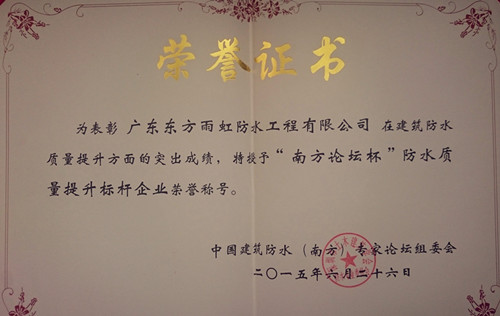 荣誉证书
为表彰 广东东方雨虹防水工程有限公司 在建筑防水
质量提升方面的突出成绩，特授予“南方论坛杯”防水质
量提升标杆企业荣誉称号。
中国建筑防水（南方）专家论坛组委会
二〇一五年六月二十六日